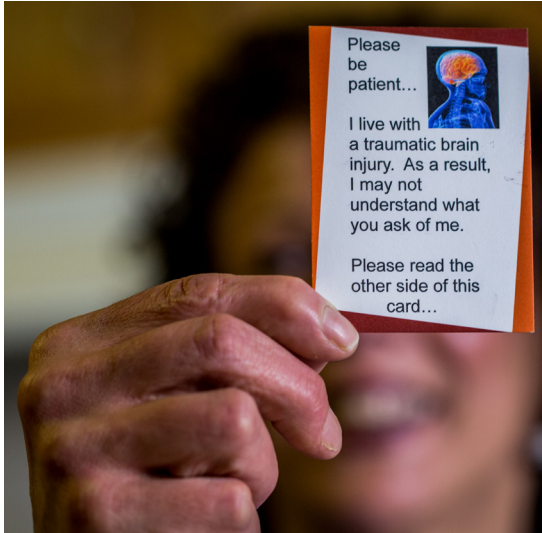 Please
be
patient…
I live with
a traumatic brain
injury.  As a result,
I may not
understand what
you ask of me.
Please read the
other side of this
card…